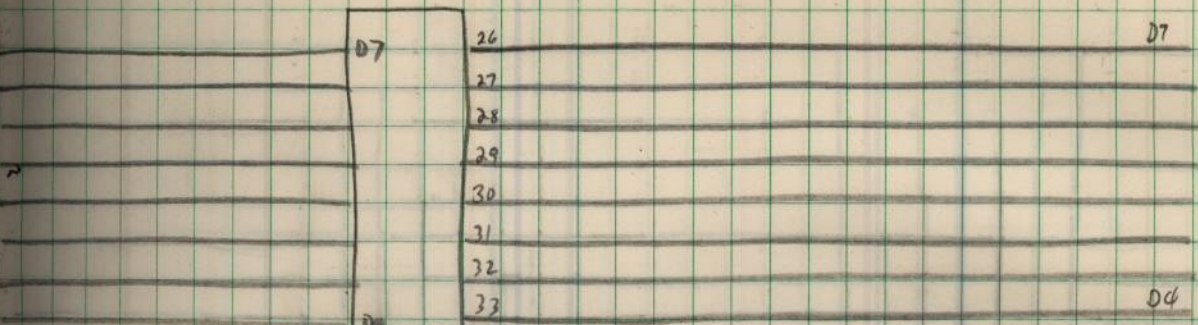 D7 26 D7
27
28
29
30
31
32
33 DØ